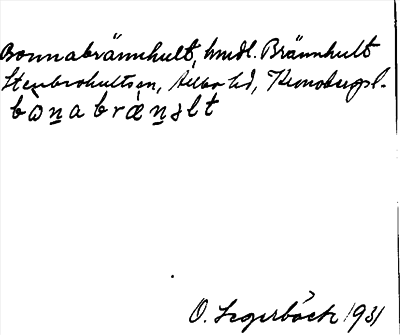 Bonnabrännhult, hmdl. Brännhult
Stenbrohults sn, Allbo hd, Kronobergs l.
bòn̲abræ̀n̲əlt
O. Segerbäck 1931